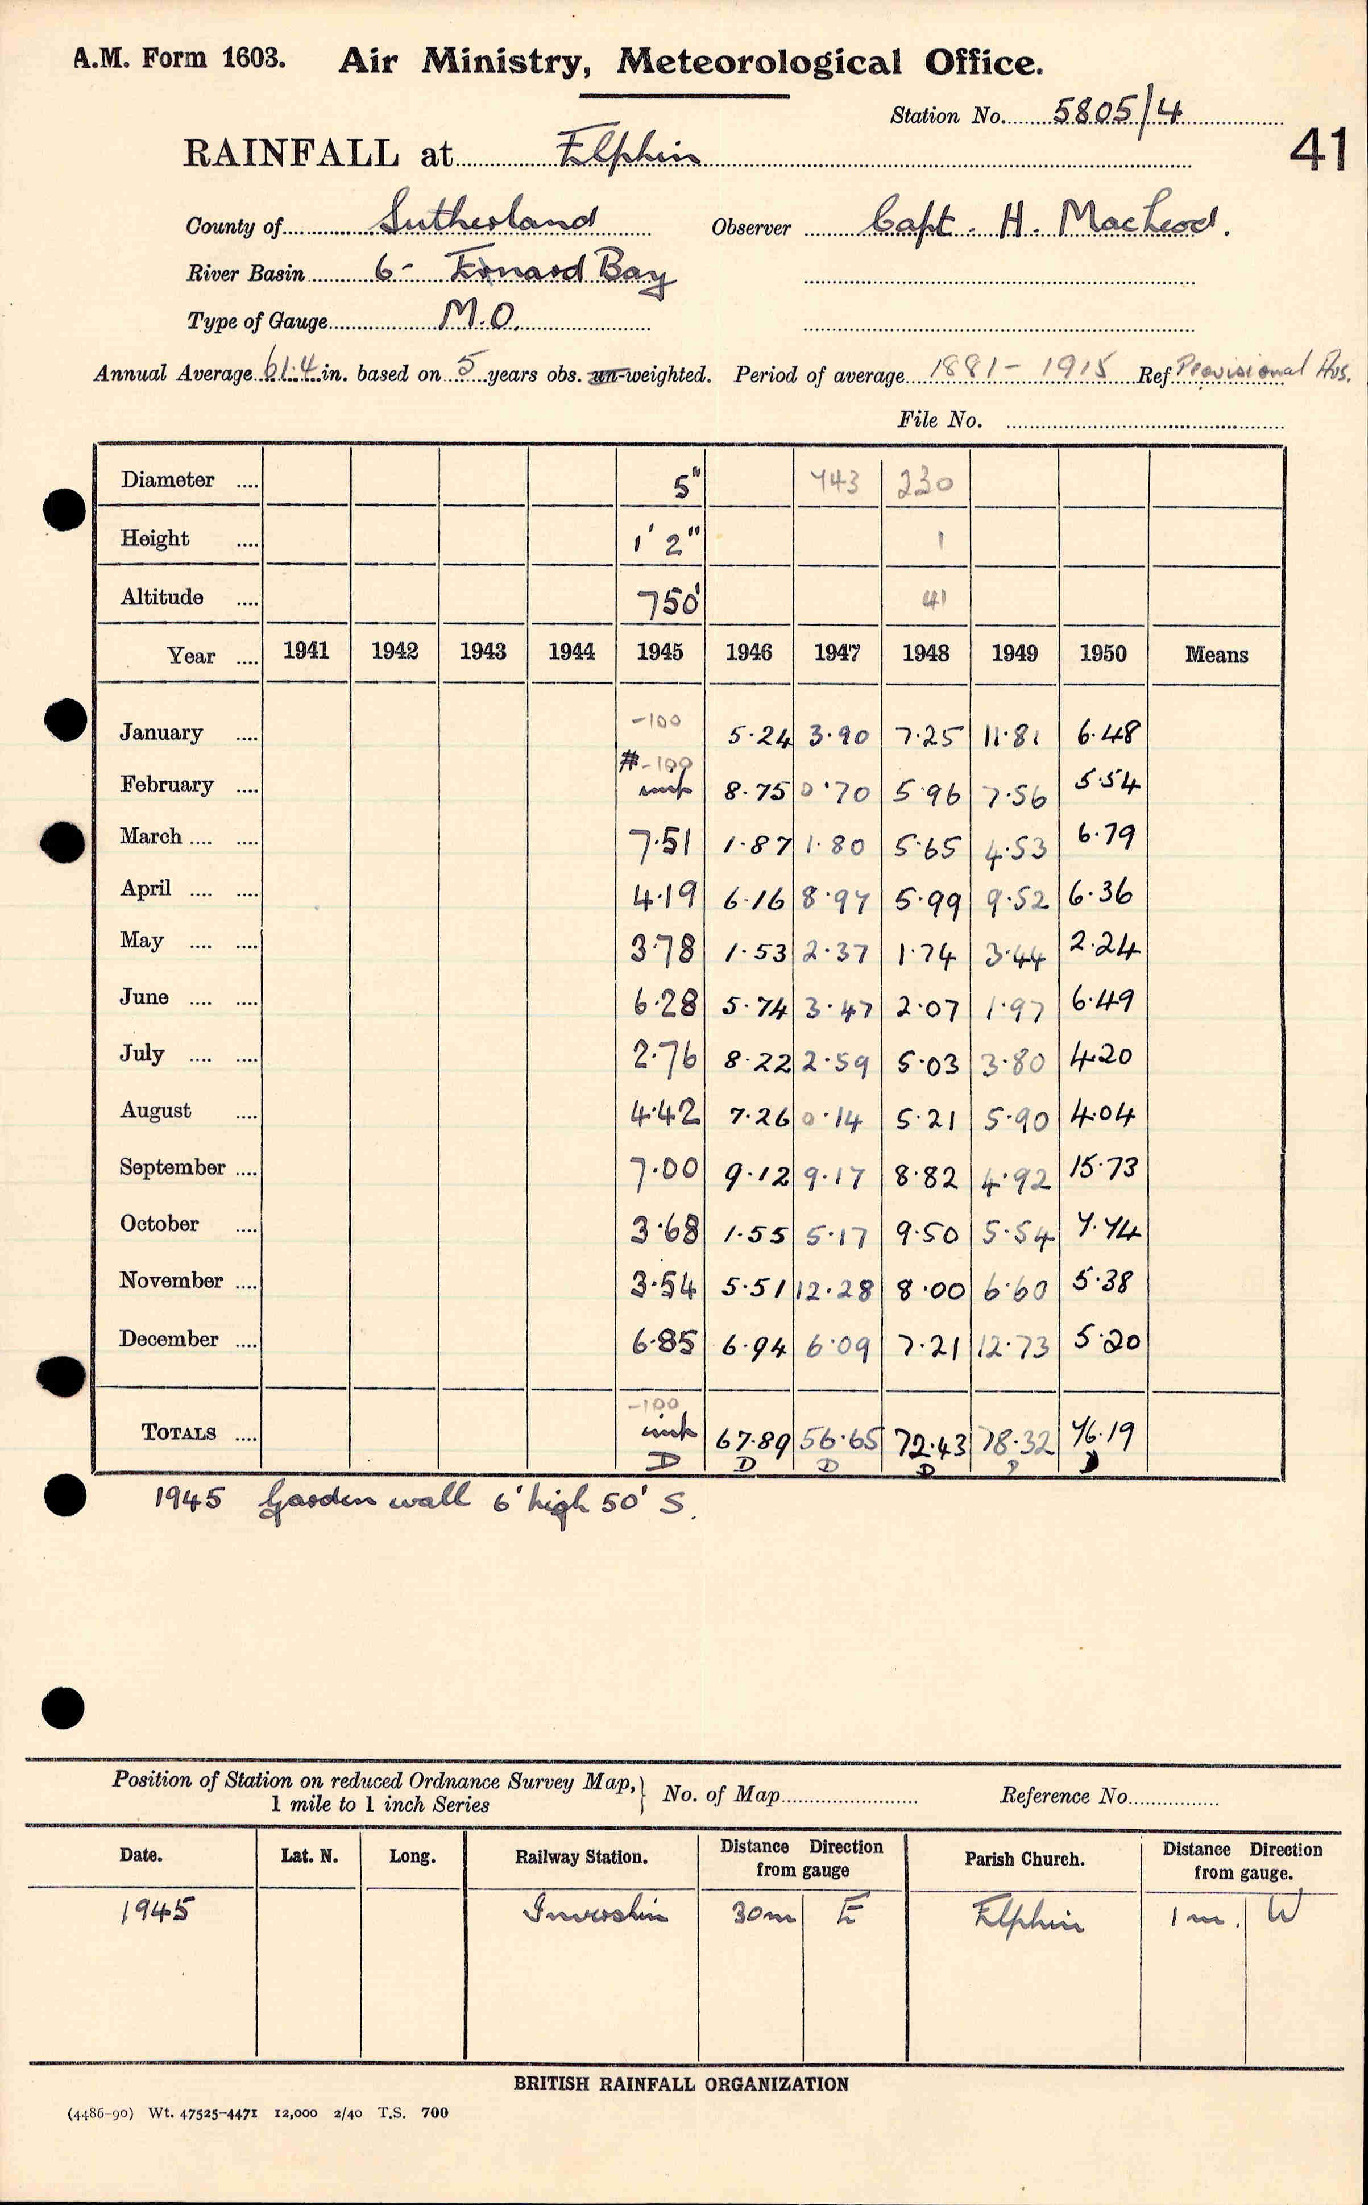 A.M. Form 1603. Air Ministry, Meteorological Office.
Station No. 5805/4
RAINFALL at Elphin
41
County of Sutherland Observer Capt. H. MacLeod.
River Basin 6 - Enard Bay
Type of Gauge M.O.
Annual Average 61.4 in. based on 5 years obs. un-weighted. Period of average 1881 - 1915 Ref Provisional Avs.
File No.
Diameter .... 5" 743 230
Height .... 1' 2" 1
Altitude .... 750' 41
Year .... 1941 1942 1943 1944 1945 1946 1947 1948 1949 1950 Means
January .... -100 5.24 3.90 7.25 11.81 6.48
February .... # -100 8.75 0.70 5.96 7.56 5.54
March .... .... 7.51 1.87 1.80 5.65 4.53 6.79
April .... .... 4.19 6.16 8.97 5.99 9.52 6.36
May .... .... 3.78 1.53 2.37 1.74 3.44 2.24
June .... .... 6.28 5.74 3.47 2.07 1.97 6.49
July .... .... 2.76 8.22 2.59 5.03 3.80 4.20
August .... 4.42 7.26 0.14 5.21 5.90 4.04
September .... 7.00 9.12 9.17 8.82 4.92 15.73
October .... 3.68 1.55 5.17 9.50 5.54 7.74
November .... 3.54 5.51 12.28 8.00 6.60 5.38
December .... 6.85 6.94 6.09 7.21 12.73 5.20
TOTALS .... -100 67.89 56.65 72.43 78.32 76.19
D D D D D D
1945 Garden wall 6' high 50' S.
Position of Station on reduced Ordnance Survey Map, } No. of Map Reference No.
1 mile to 1 inch Series
Date. Lat. N. Long. Railway Station. Distance Direction from gauge Parish Church. Distance Direction from gauge.
1945 Invershin 30m E Elphin 1 m. W
BRITISH RAINFALL ORGANIZATION
(4486-90) Wt. 47525-4471 12,000 2/40 T.S. 700